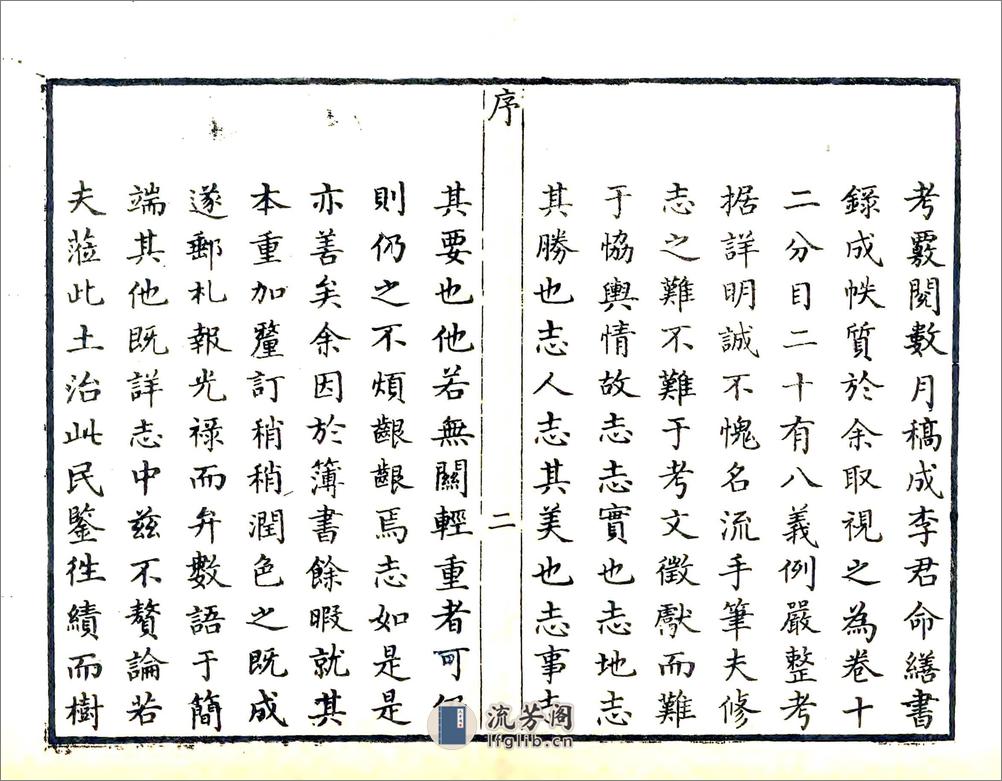 考覈閱數月稿成李君命繕書
錄成帙質於余取視之為卷十
二分目二十有八義例嚴整考
据詳明誠不愧名流手筆夫修
志之難不難于考文徵獻而難
于恊輿情故志志實也志地志
其勝也志人志其美也志事志
序
二
其要也他若無關輕重者可仍
則仍之不煩齦齦焉志如是是
亦善矣余因於簿書餘暇就其
本重加釐訂稍稍潤色之既成
遂郵札報光祿而弁數語于簡
端其他既詳志中茲不贅論若
夫蒞此土治此民鑒徃績而樹
流芳阁
lfglib.cn